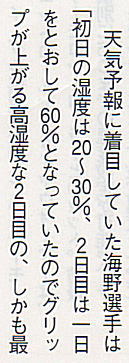 天気予報に着目していた海野選手は
「初日の湿度は20〜30%、2日目は一日
をとおして60%となっていたのでグリッ
プが上がる高湿度な2日目の、しかも最